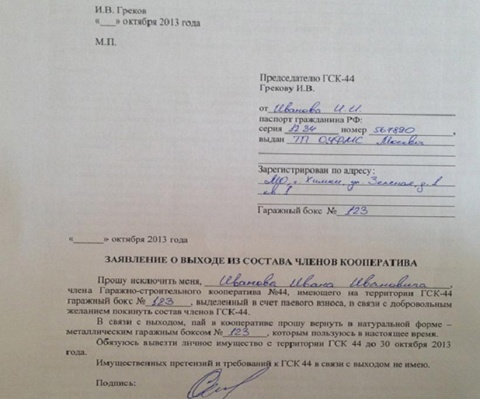 И.В. Греков
«___» октября 2013 года
М.П.
Председателю ГСК-44
Грекову И.В.
от Иванова И.И.
паспорт гражданина РФ:
серия 1234 номер 567890,
выдан ТП ОУФМС Москвы
Зарегистрирован по адресу:
МО, г. Химки, ул. Зеленая, д. 1
Гаражный бокс № 123
«______» октября 2013 года
ЗАЯВЛЕНИЕ О ВЫХОДЕ ИЗ СОСТАВА ЧЛЕНОВ КООПЕРАТИВА
Прошу исключить меня, Иванова Ивана Ивановича,
члена Гаражно-строительного кооператива №44, имеющего на территории ГСК-44
гаражный бокс № 123, выделенный в счет паевого взноса, в связи с добровольным
желанием покинуть состав членов ГСК-44.
В связи с выходом, пай в кооперативе прошу вернуть в натуральной форме –
металлическим гаражным боксом № 123, которым пользуюсь в настоящее время.
Обязуюсь вывезти личное имущество с территории ГСК 44 до 30 октября 2013
года.
Имущественных претензий и требований к ГСК 44 в связи с выходом не имею.
Подпись: